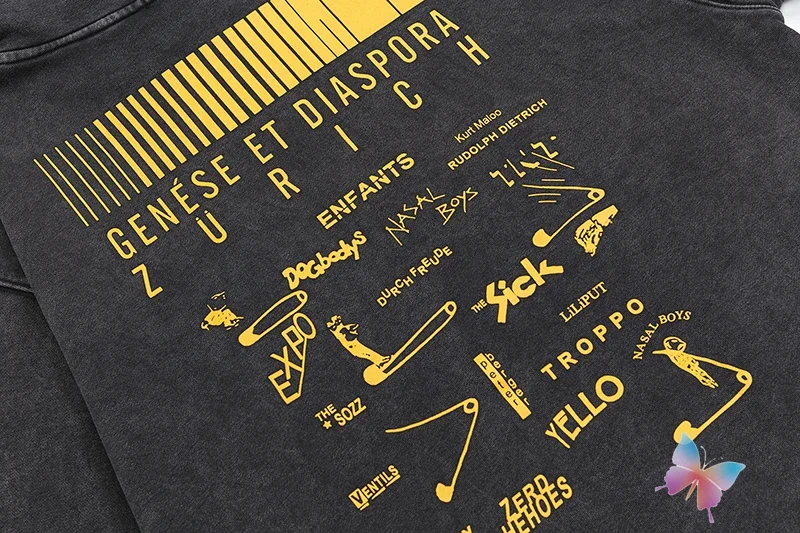 GENÉSE ET DIASPORA
ZÜRICH
Kurt Maloo
RUDOLPH DIETRICH
ENFANTS
NASAL BOYS
DOGbodys
DURCH FREUDE
THE Sick
EXPO
LiLiPUT
TROPPO
NASAL BOYS
berger
peter
THE SOZZ
YELLO
VENTILS
ZERO
HEROES